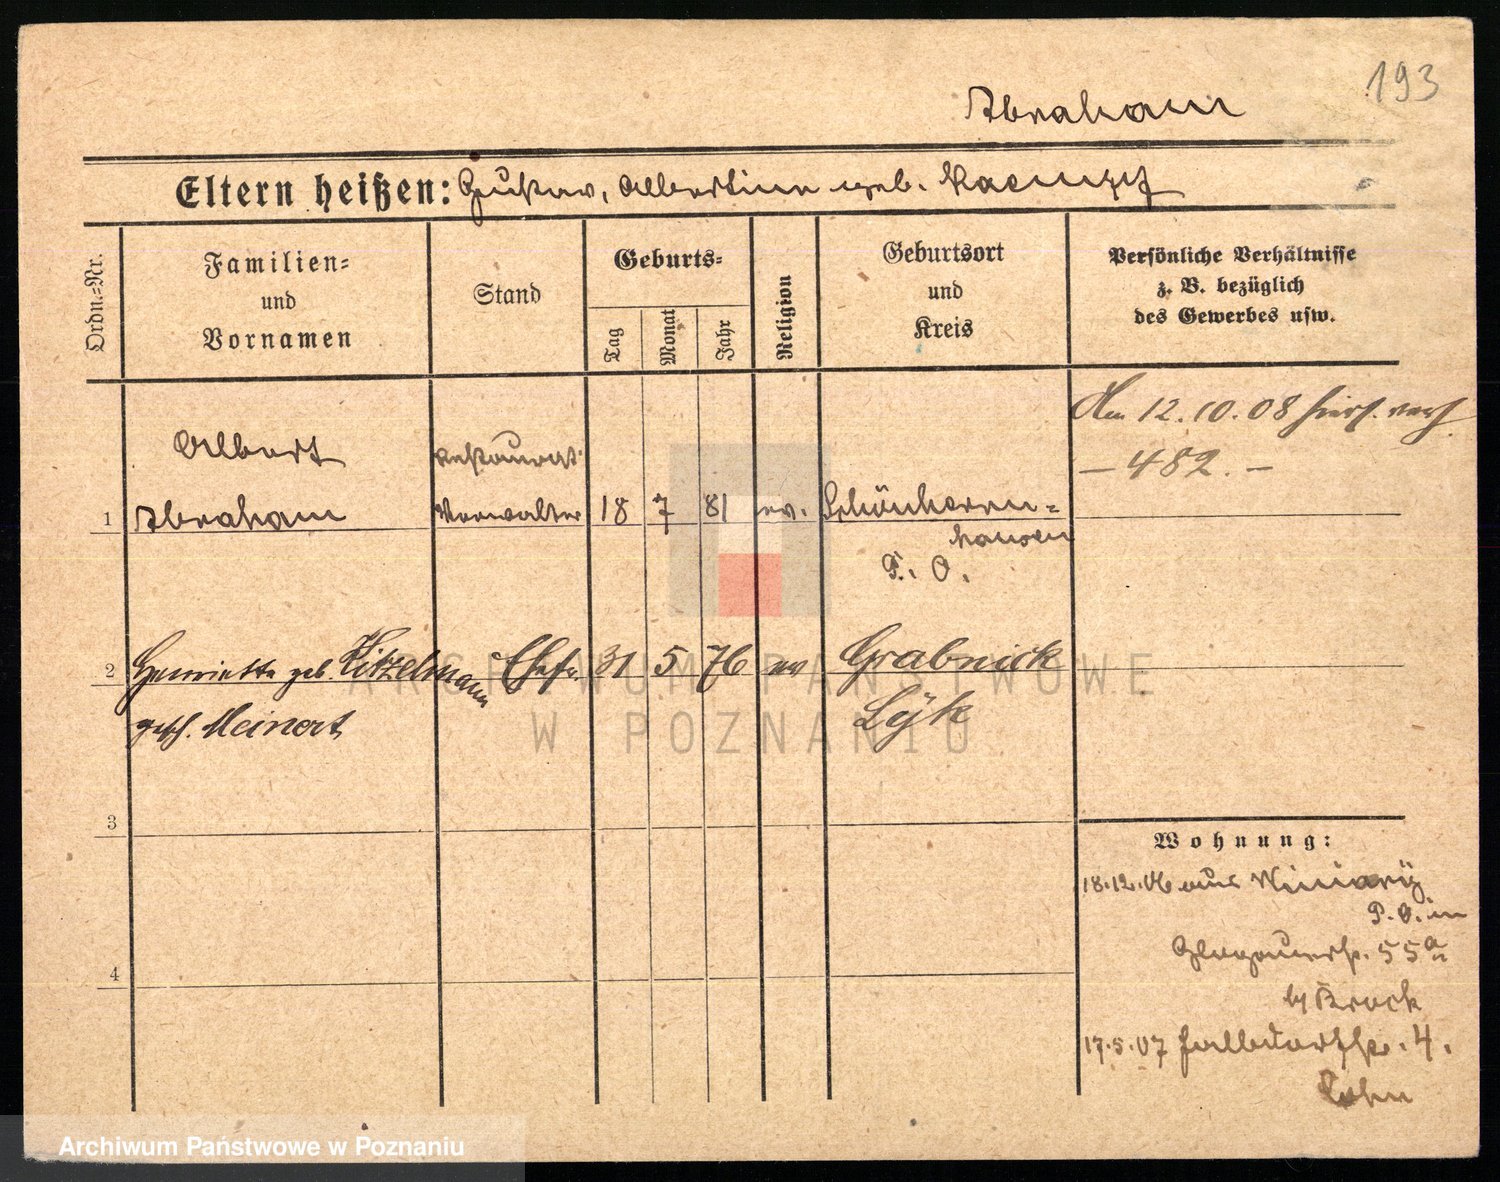 193
Abraham
Eltern heißen: Gustav, Albertine geb.
Ordn.=Nr.
Familien=
und
Vornamen
Stand
Geburts=
Tag
Monat
Jahr
Religion
Geburtsort
und
Kreis
Persönliche Verhältnisse
z. B. bezüglich
des Gewerbes usw.
Am 12.10.08 hiers.
— 482. —
Albert
Restaurat.
1 Abraham Verwalter 18 7 81 ev. Schönherrn=
hausen
P. O.
2 Henriette geb. Kitzelmann Ehefr. 31 5 76 ev Grabnick
gesch. Meinert Lÿk
3
Wohnung:
18.12.06 aus
P. O. in
Glogauerstr. 55a
4
b/ Brock
17.5.07 4.
Sohn
ARCHIWUM PAŃSTWOWE
W POZNANIU
Archiwum Państwowe w Poznaniu